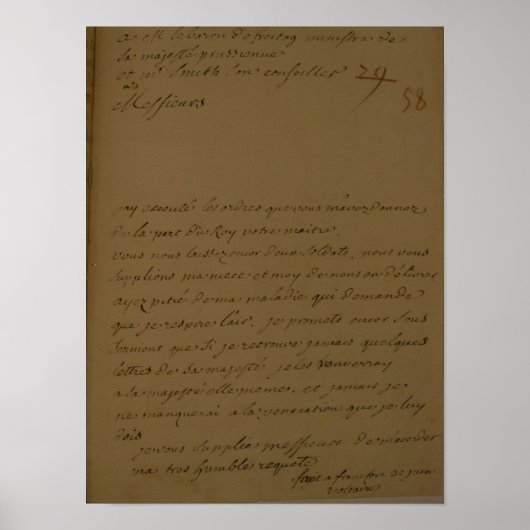 a M le baron de freitag ministre de
sa majesté prussienne
et mr Smith son conseiller 29
58
Messieurs
jay executé les ordres que vous mavez donnez
de la part du Roy votre maitre.
vous nous laissez encor deux soldats, nous vous
supplions ma niece et moy de nous en délivrer
ayez pitié de ma maladie qui demande
que je respire lair. je promets encor sous
serment que si je retrouve jamais quelques
lettres de sa majesté je les renverray
a sa majesté elle meme, et jamais je
ne manquerai a la veneration que je luy
dois
je vous supplie messieurs de maccorder
ma tres humble requete
fait a francfort 21 juin
Voltaire